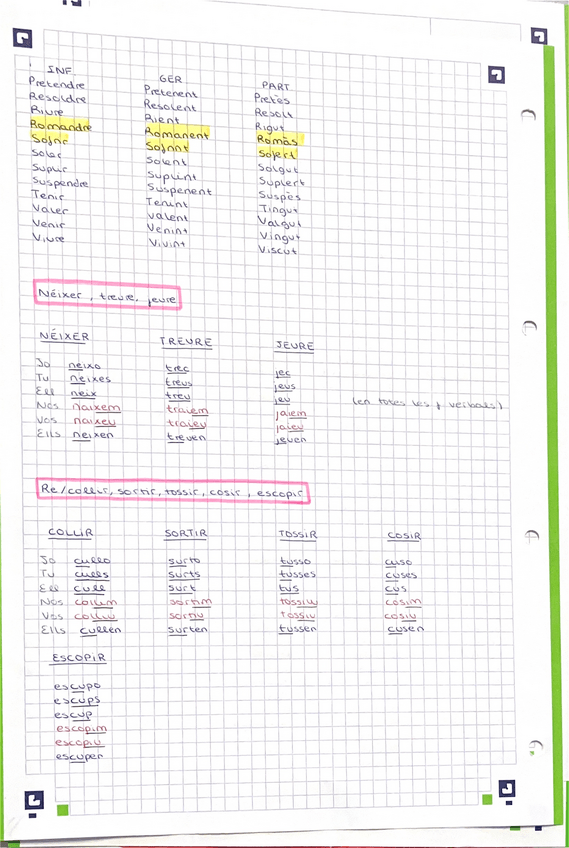 INF. GER PART
Pretendre Pretenent Pretès
Resoldre Resolent Resolt
Riure Rient Rigut
Romandre Romanent Romàs
Sofrir Sofrint Sofert
Soler Solent Solgut
Suplir Suplint Suplert
Suspendre Suspenent Suspès
Tenir Tenint Tingut
Valer Valent Valgut
Venir Venint Vingut
Viure Vivint Viscut
Néixer, treure, jeure
NÉIXER TREURE JEURE
Jo neixo trec jec
Tu neixes treus jeus
Ell neix treu jeu
Nos naixem traiem jaiem (en totes les f verbals)
Vos naixeu traieu jaieu
Ells neixen treuen jeuen
Re/collir, sortir, tossir, cosir, escopir
COLLIR SORTIR TOSSIR COSIR
Jo cullo surto tusso cuso
Tu culls surts tusses cuses
Ell cull surt tus cus
Nos collim sortim tossim cosim
Vos colliu sortiu tossiu cosiu
Ells cullen surten tussen cusen
ESCOPIR
escupo
escups
escup
escopim
escopiu
escupen